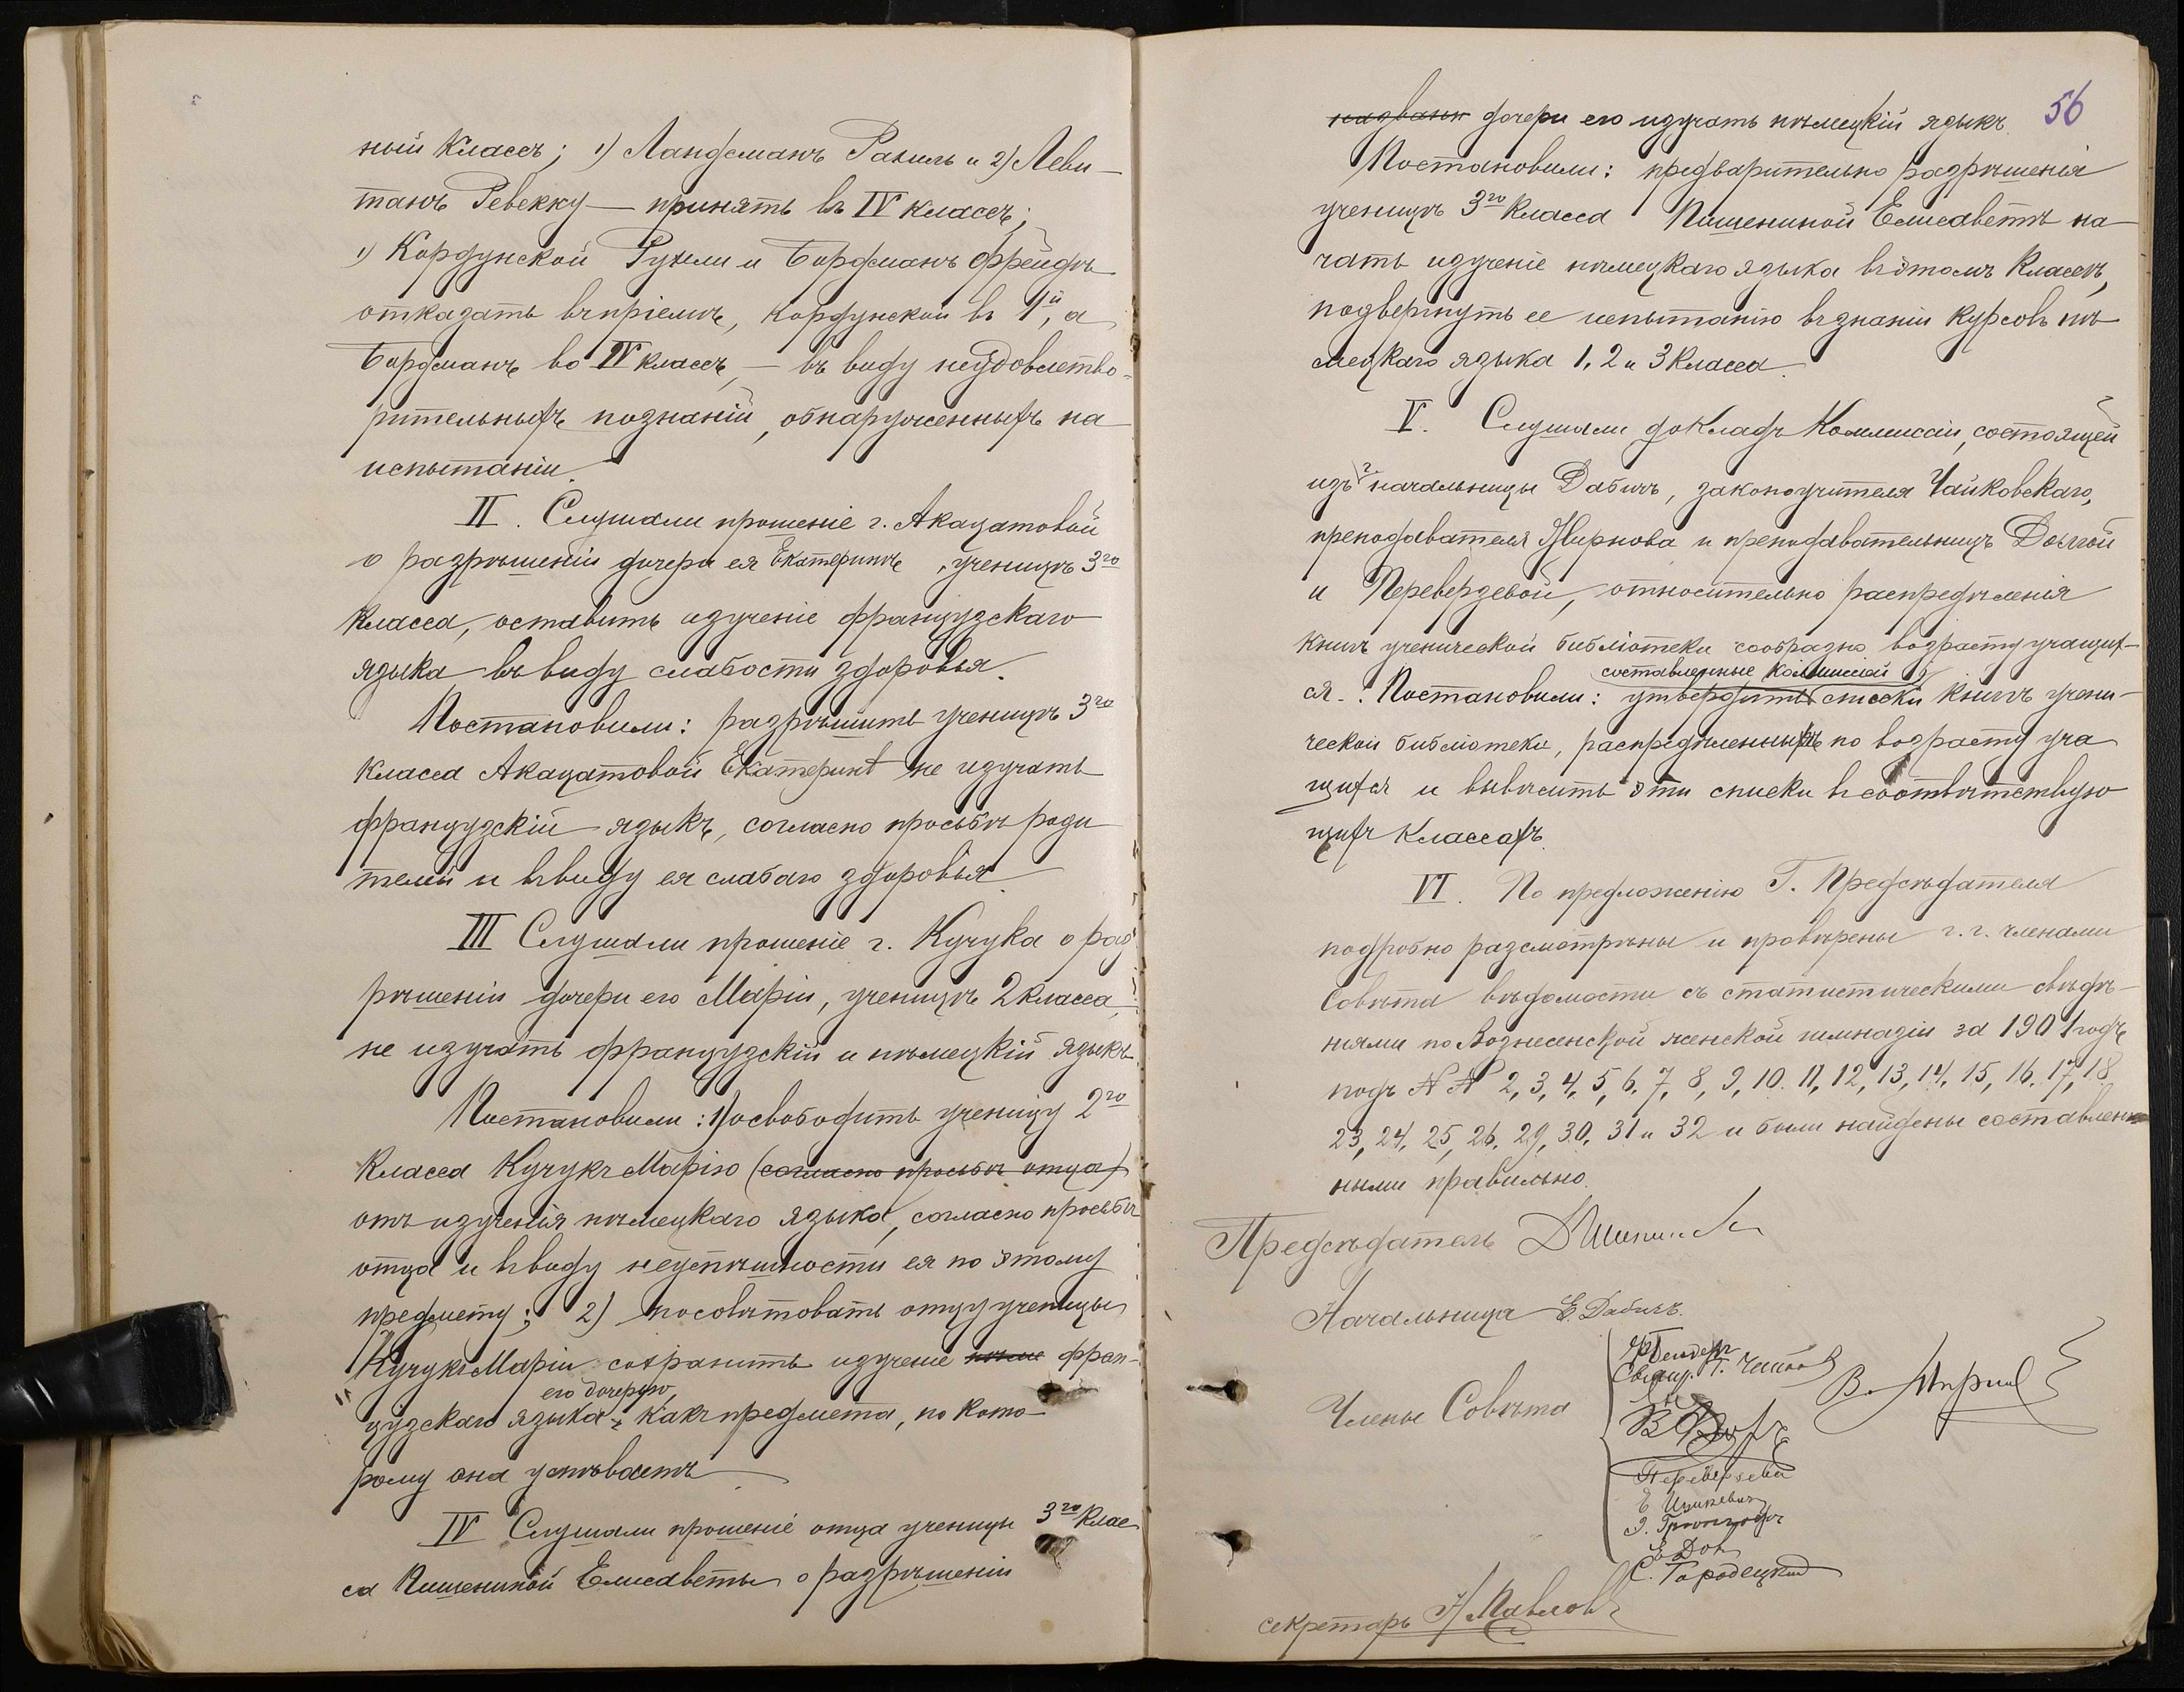 ный классъ; 1) Ландсманъ Рахиль и 2) Леви-
танъ Ревекку — принять въ IV классъ;
1) Кордунской Рухли и Бордманъ Фрейдѣ
отказать въ пріемѣ, Кордунской въ 1й, а
Бордманъ во IV классъ, — въ виду неудовлетво-
рительныхъ познаній, обнаруженныхъ на
испытаніи.
II. Слушали прошеніе г. Акацатовой
о разрѣшеніи дочери ея Екатеринѣ, ученицѣ 3го
класса, оставить изученіе французскаго
языка въ виду слабости здоровья.
Постановили: разрѣшить ученицѣ 3го
класса Акацатовой Екатеринѣ не изучать
французскій языкъ, согласно просьбѣ роди
телей и въ виду ея слабаго здоровья.
III Слушали прошеніе г. Кучука о раз
рѣшеніи дочери его Маріи, ученицѣ 2 класса,
не изучать французскій и нѣмецкій языкъ.
Постановили: 1) освободить ученицу 2го
класса Кучукъ Марію (согласно просьбѣ отца)
отъ изученія нѣмецкаго языка, согласно просьбѣ
отца и въ виду неуспѣшности ея по этому
предмету; 2) посовѣтовать отцу ученицы
Кучукъ Маріи сохранить изученіе нѣме фран-
его дочерью,
цузскаго языка, какъ предмета, по кото-
рому она успѣваетъ
IV Слушали прошеніе отца ученицы 3го клас
са Пишениной Елисаветы о разрѣшеніи
56
дочери его изучать нѣмецкій языкъ.
Постановили: предварительно разрѣшенія
ученицѣ 3го класса Пишениной Елисаветѣ на
чать изученіе нѣмецкаго языка въ этомъ классѣ,
подвергнуть ее испытанію въ знаніи курсовъ нѣ
мецкаго языка 1, 2 и 3 класса.
V. Слушали докладъ Коммиссіи, состоящей
изъ г. начальницы Дабичъ, законоучителя Чайковскаго,
преподавателя Жирнова и преподавательницъ Долгой
и Переверзевой, относительно распредѣленія
книгъ ученической библіотеки сообразно возрасту учащих-
составленные Коммиссіей
ся. Постановили: утвердить списки книгъ учени-
ческой библіотеки, распредѣленныхъ по возрасту уча
щихся и вывѣсить эти списки въ соотвѣтствую
щихъ классахъ.
VI. По предложенію Г. Предсѣдателя
подробно разсмотрѣны и провѣрены г.г. членами
Совѣта вѣдомости съ статистическими свѣдѣ-
ніями по Вознесенской женской гимназіи за 1901 годъ
подъ № № 2, 3, 4, 5, 6, 7, 8, 9, 10, 11, 12, 13, 14, 15, 16, 17, 18,
23, 24, 25, 26, 29, 30, 31 и 32 и были найдены составлен
ными правильно.
Предсѣдатель
Начальница Е. Дабичъ.
Члены Совѣта
Свящ. Г.
Переверзева
С. Городецкій
секретарь Павловъ